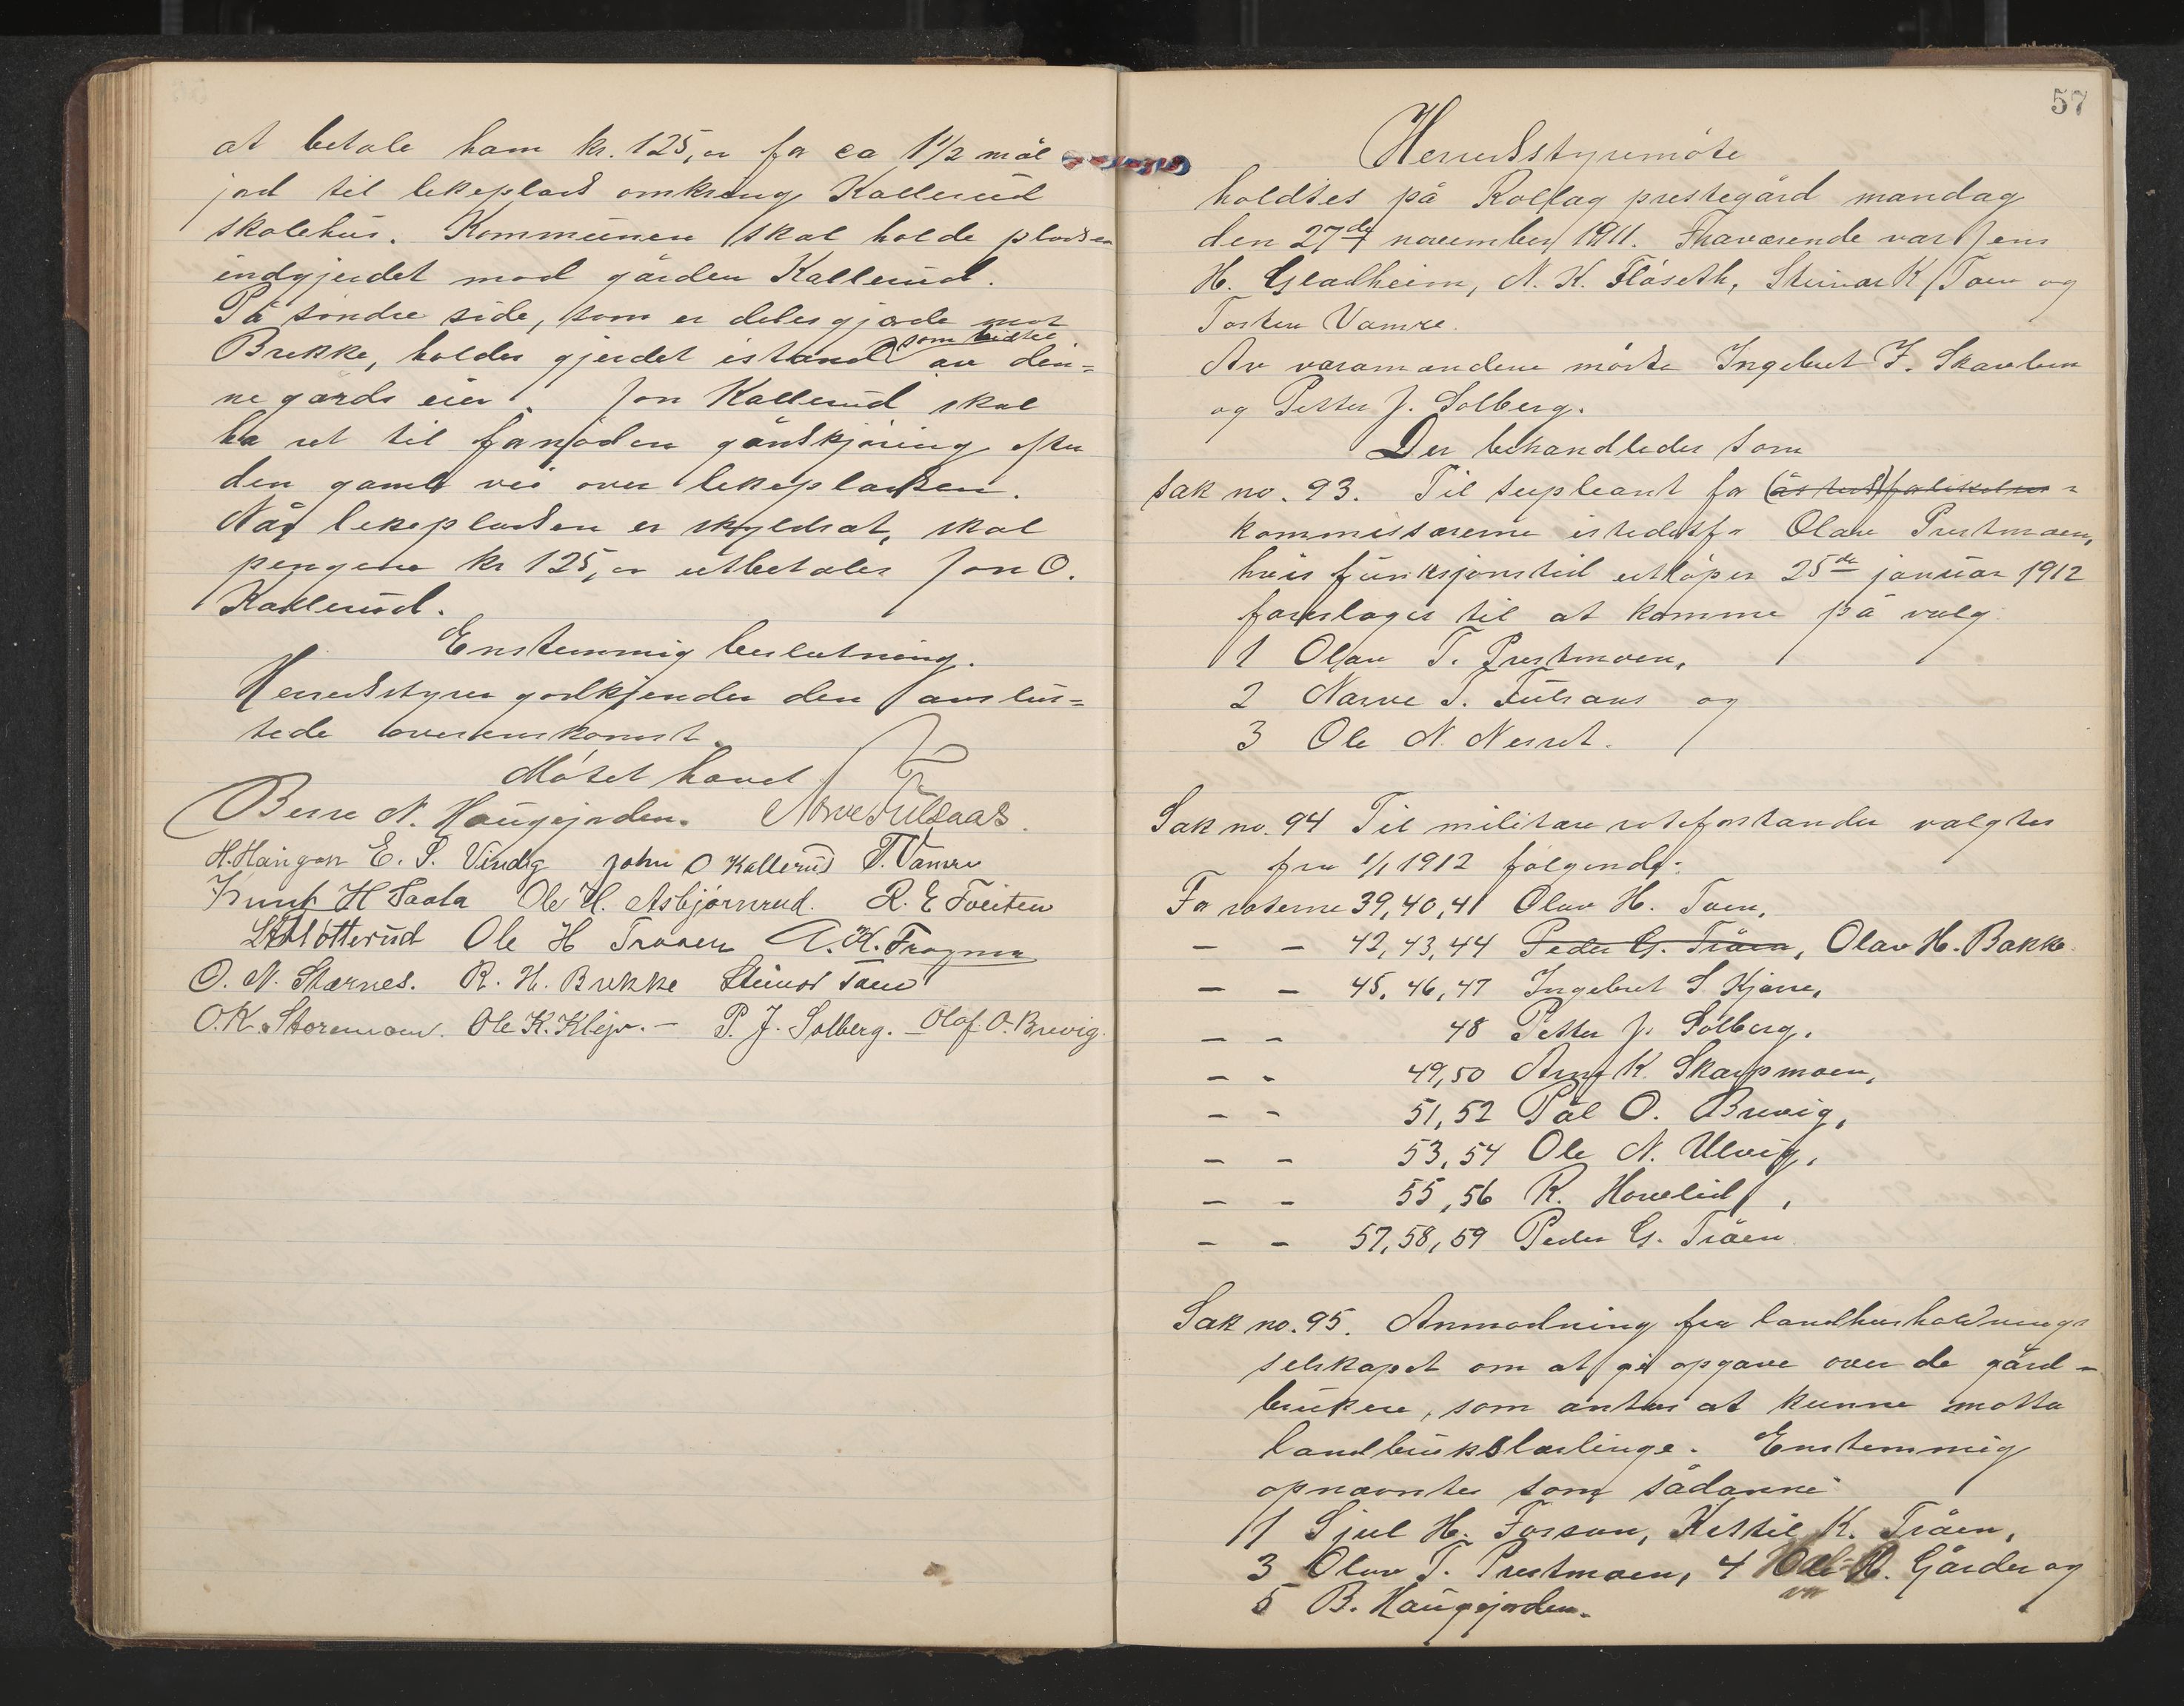 at betale ham kr. 125,00 for ca 1 1/2 mål
jord til lekeplads omkring Kallerud
skolehus. Kommunen skal holde pladsen
indgjerdet mod gården Kallerud.
På söndre side, som er delesgjærde mot
Brekke, holdes gjerdet istand som hidtil av den=
ne gards eier. Jon Kallerud skal
ha ret til fornöden gårdskjöring efter
den gamle vei over lekepladsen.
Når lekepladsen er skyldsat, skal
pengene kr 125,00 utbetales Jon O.
Kallerud.
Enstemmig beslutning.
Herredsstyret godkjender den avslut=
tede overenskomst.
Mötet hævet
Berre N. Haugejorden. Narve Fulsaas.
H. Haugan E. S. Vindeg John O Kallerud T. Vamre
Knut H Saata Ole H. Asbjörnrud. R. E Tveiten
Slötterud Ole H Traaen A. K. Frogner
O. N. Stærnes. R. H. Brekke Steinar Toen
O. K. Storemoen. Ole K. Klejv. – P. J. Solberg. – Olaf. O. Brevig.
57
Herredsstyremöte
holdtes på Rollag prestegård mandag
den 27de november 1911. Fraværende var Jens
H. Gladheim, N. K. Flåseth, Steinar K Toen og
Tosten Vamre.
Av varamændene mötte Ingebret F. Skarelven
og Petter J. Solberg.
Der behandledes som
Sak no. 93. Til supleant for (åsteds)forlikelses=
kommissærerne istedetfor Olav Prestmoen,
hvis funksjonstid utlöper 25de januar 1912
foreslåges til at komme på valg
1 Olav T. Prestmoen,
2 Narve T. Fulsaas og
3 Ole N. Nerset.
Sak no. 94 Til militære roteforstander valgtes
fra 1/1 1912 fölgende:
For roterne 39, 40, 41 Olav H. Toen,
– – 42, 43, 44 Peder G. Tråen, Olav H. Bakke
– – 45, 46, 47 Ingebret S. Kjone,
– – 48 Petter J. Solberg.
– – 49, 50 Arne K. Skarpmoen,
– – 51, 52 Pål O. Brevig,
– – 53, 54 Ole N. Ulvig,
– – 55, 56 R. Hovelid,
– – 57, 58, 59 Peder G. Tråen
Sak no. 95. Anmodning fra landhusholdnings
selskapet om at gi opgave over de gård=
brukere, som antas at kunne motta
landbrukslærlinge. Enstemmig
opnævntes som sådanne
1 Sjul H. Fossan, Kettil K. Tråen,
3 Olav T. Prestmoen, 4 H. Gårder og
5 B. Haugejorden.